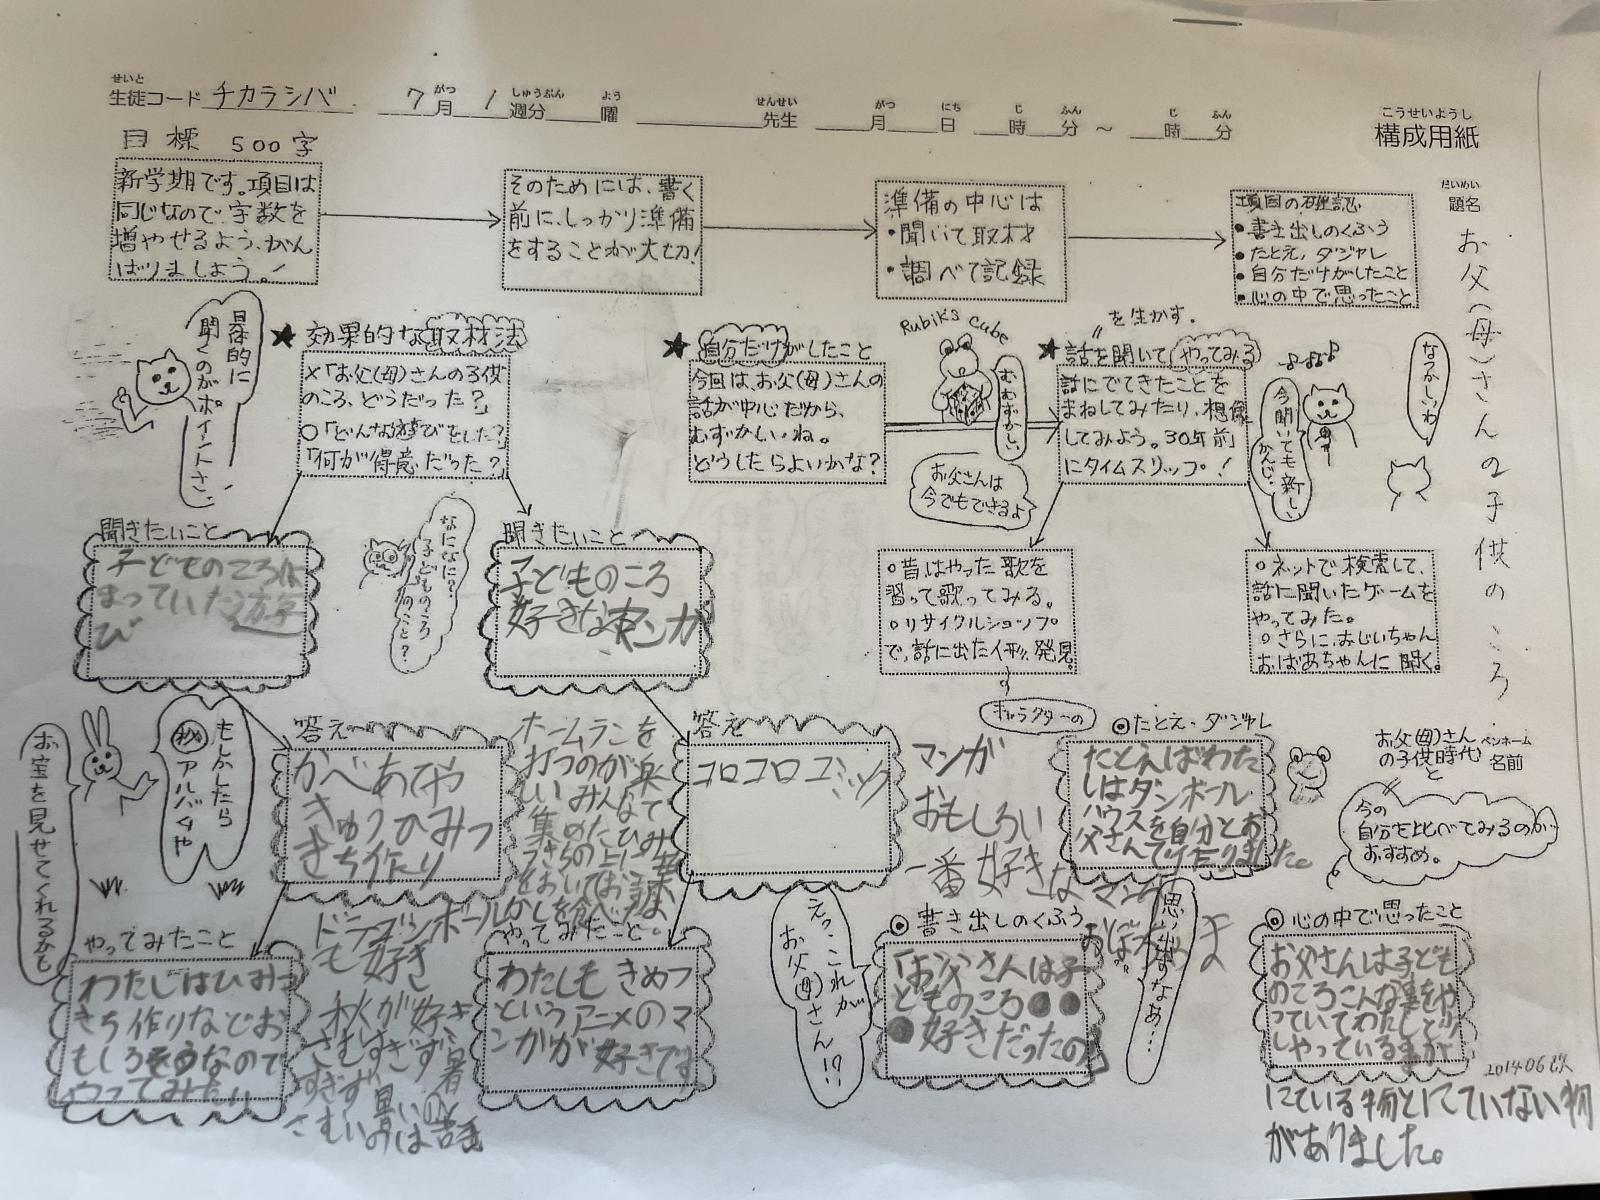 せいと
生徒コード チカラシバ 7月 1週分 曜 先生 月 日 時 分 ～ 時 分
がつ しゅうぶん よう せんせい がつ にち じ ふん じ ふん
こうせいようし
構成用紙
だいめい
題名
お父(母)さんの子供のころ
ペンネーム
名前
目標 500字
新学期です。項目は
同じなので、字数を
増やせるよう、がん
ばりましょう。!
そのためには、書く
前に、しっかり準備
をすることが大切!
準備の中心は
・聞いて取材
・調べて記録
項目の確認
●書き出しのくふう
●たとえ，ダジャレ
●自分だけがしたこと
●心の中で思ったこと
具体的に
聞くのがポイントさ。
★効果的な取材法
×「お父(母)さんの子供
のころ、どうだった?」
○「どんな遊びをした?」
「何が得意だった?」
★自分だけがしたこと
今回は、お父(母)さんの
話が中心だから、
むずかしいね。
どうしたらよいかな?
Rubik's Cube
むむずかしい。
お父さんは
今でもできるよ
〃を生かす。
★話を聞いてやってみる
話にでてきたことを
まねしてみたり、想像
してみよう。30年前
にタイムスリップ!
今聞いても新しい
かんじ。
なつかしいわ
聞きたいこと
子どものころは
まっていた遊
び
なになに?
子どものころ
のこと?
聞きたいこと
子どものころ
好きなマンガ
○昔はやった歌を
習って歌ってみる。
○リサイクルショップ
で、話に出た人形発見
キャラクターの
○ネットで検索して、
話に聞いたゲームを
やってみた。
○さらに、おじいちゃん
おばあちゃんに聞く。
もしかしたら
㊙アルバムや
お宝を見せてくれるかも
答え
かべあてや
きゅうひみつ
きち作り
ホームランを
打つのが楽
しい みんなで
集めたひみ
答え
コロコロコミック
マンガ
おもしろい
一番好きな
マンガ
おぼっちゃま
◎たとえ・ダジャレ
たとえばわた
しはダンボール
ハウスを自分とお
父さんで作りました。
お父(母)さん
の子供時代
と
今の
自分を比べてみるのが
おすすめ。
ドラゴンボール
も好き
秋が好き
さむすぎず暑
すぎず
やってみたこと
わたしはひみつ
きち作りなどお
もしろそうなので
やってみたり
やってみたこと
わたしもきめつ
というアニメのマ
ンガが好きです
えっ、これが
お父(母)さん!?
◎書き出しのくふう
「お父さんは子
どものころ●●
●好きだったの」
思い出すなあ…
◎心の中で思ったこと
お父さんは子ども
のころこんな事をや
っていてわたしと少
しやっている事が
にている物とにていない物
がありました。